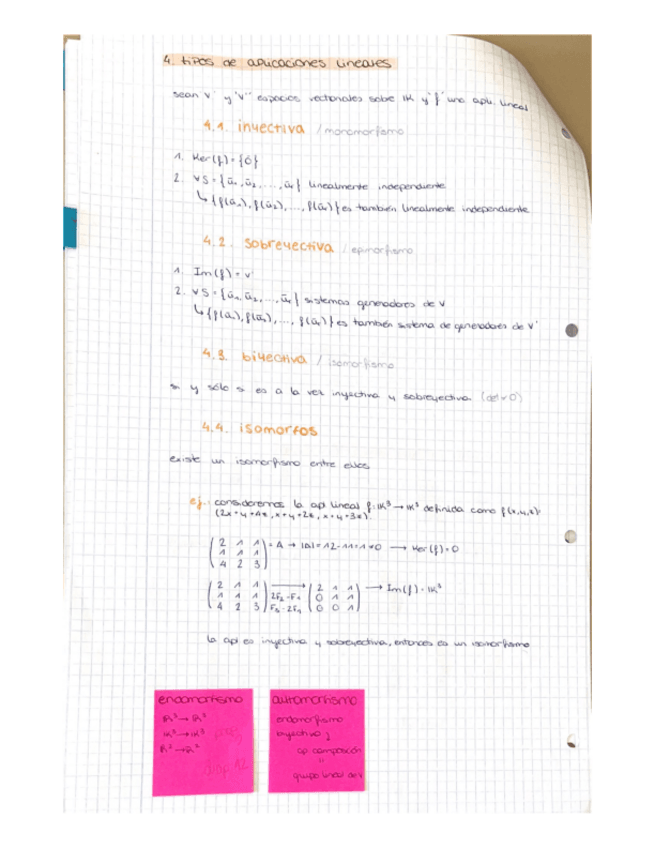 4. tipos de aplicaciones lineales
sean V y V' espacios vectoriales sobre IK y f una apli. lineal
4.1. inyectiva / monomorfismo
1. Ker(f) = {ō}
2. ∀ S = {ū₁, ū₂, ..., ūᵣ} linealmente independiente
↳ {f(ū₁), f(ū₂), ..., f(ūᵣ)} es también linealmente independiente
4.2. sobreyectiva / epimorfismo
1. Im(f) = V'
2. ∀ S = {ū₁, ū₂, ..., ūᵣ} sistemas generadores de V
↳ {f(ū₁), f(ū₂), ..., f(ūᵣ)} es también sistema de generadores de V'
4.3. biyectiva / isomorfismo
si y sólo si es a la vez inyectiva y sobreyectiva (det ≠ 0)
4.4. isomorfos
existe un isomorfismo entre ellos
ej.: consideremos la apl lineal f: IK³ → IK³ definida como f(x,y,z)=
(2x+y+4z, x+y+2z, x+y+3z).
2 1 1
1 1 1 = A → |A| = 12-11=1≠0 → Ker(f)=0
4 2 3
2 1 1 → 2 1 1 → Im(f) = IK³
1 1 1 2F₂-F₁ 0 1 1
4 2 3 F₃-2F₁ 0 0 1
la apl es inyectiva y sobreyectiva, entonces es un isomorfismo
endomorfismo
IR³ → IR³
IK³ → IK³
IR² → IR²
automorfismo
endomorfismo
biyectivo
apl composición
"
grupo lineal de V